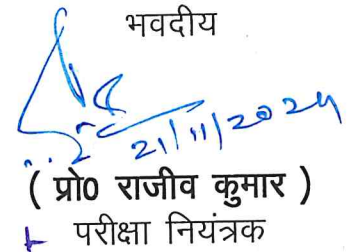 भवदीय
21/11/2024
( प्रो0 राजीव कुमार )
परीक्षा नियंत्रक